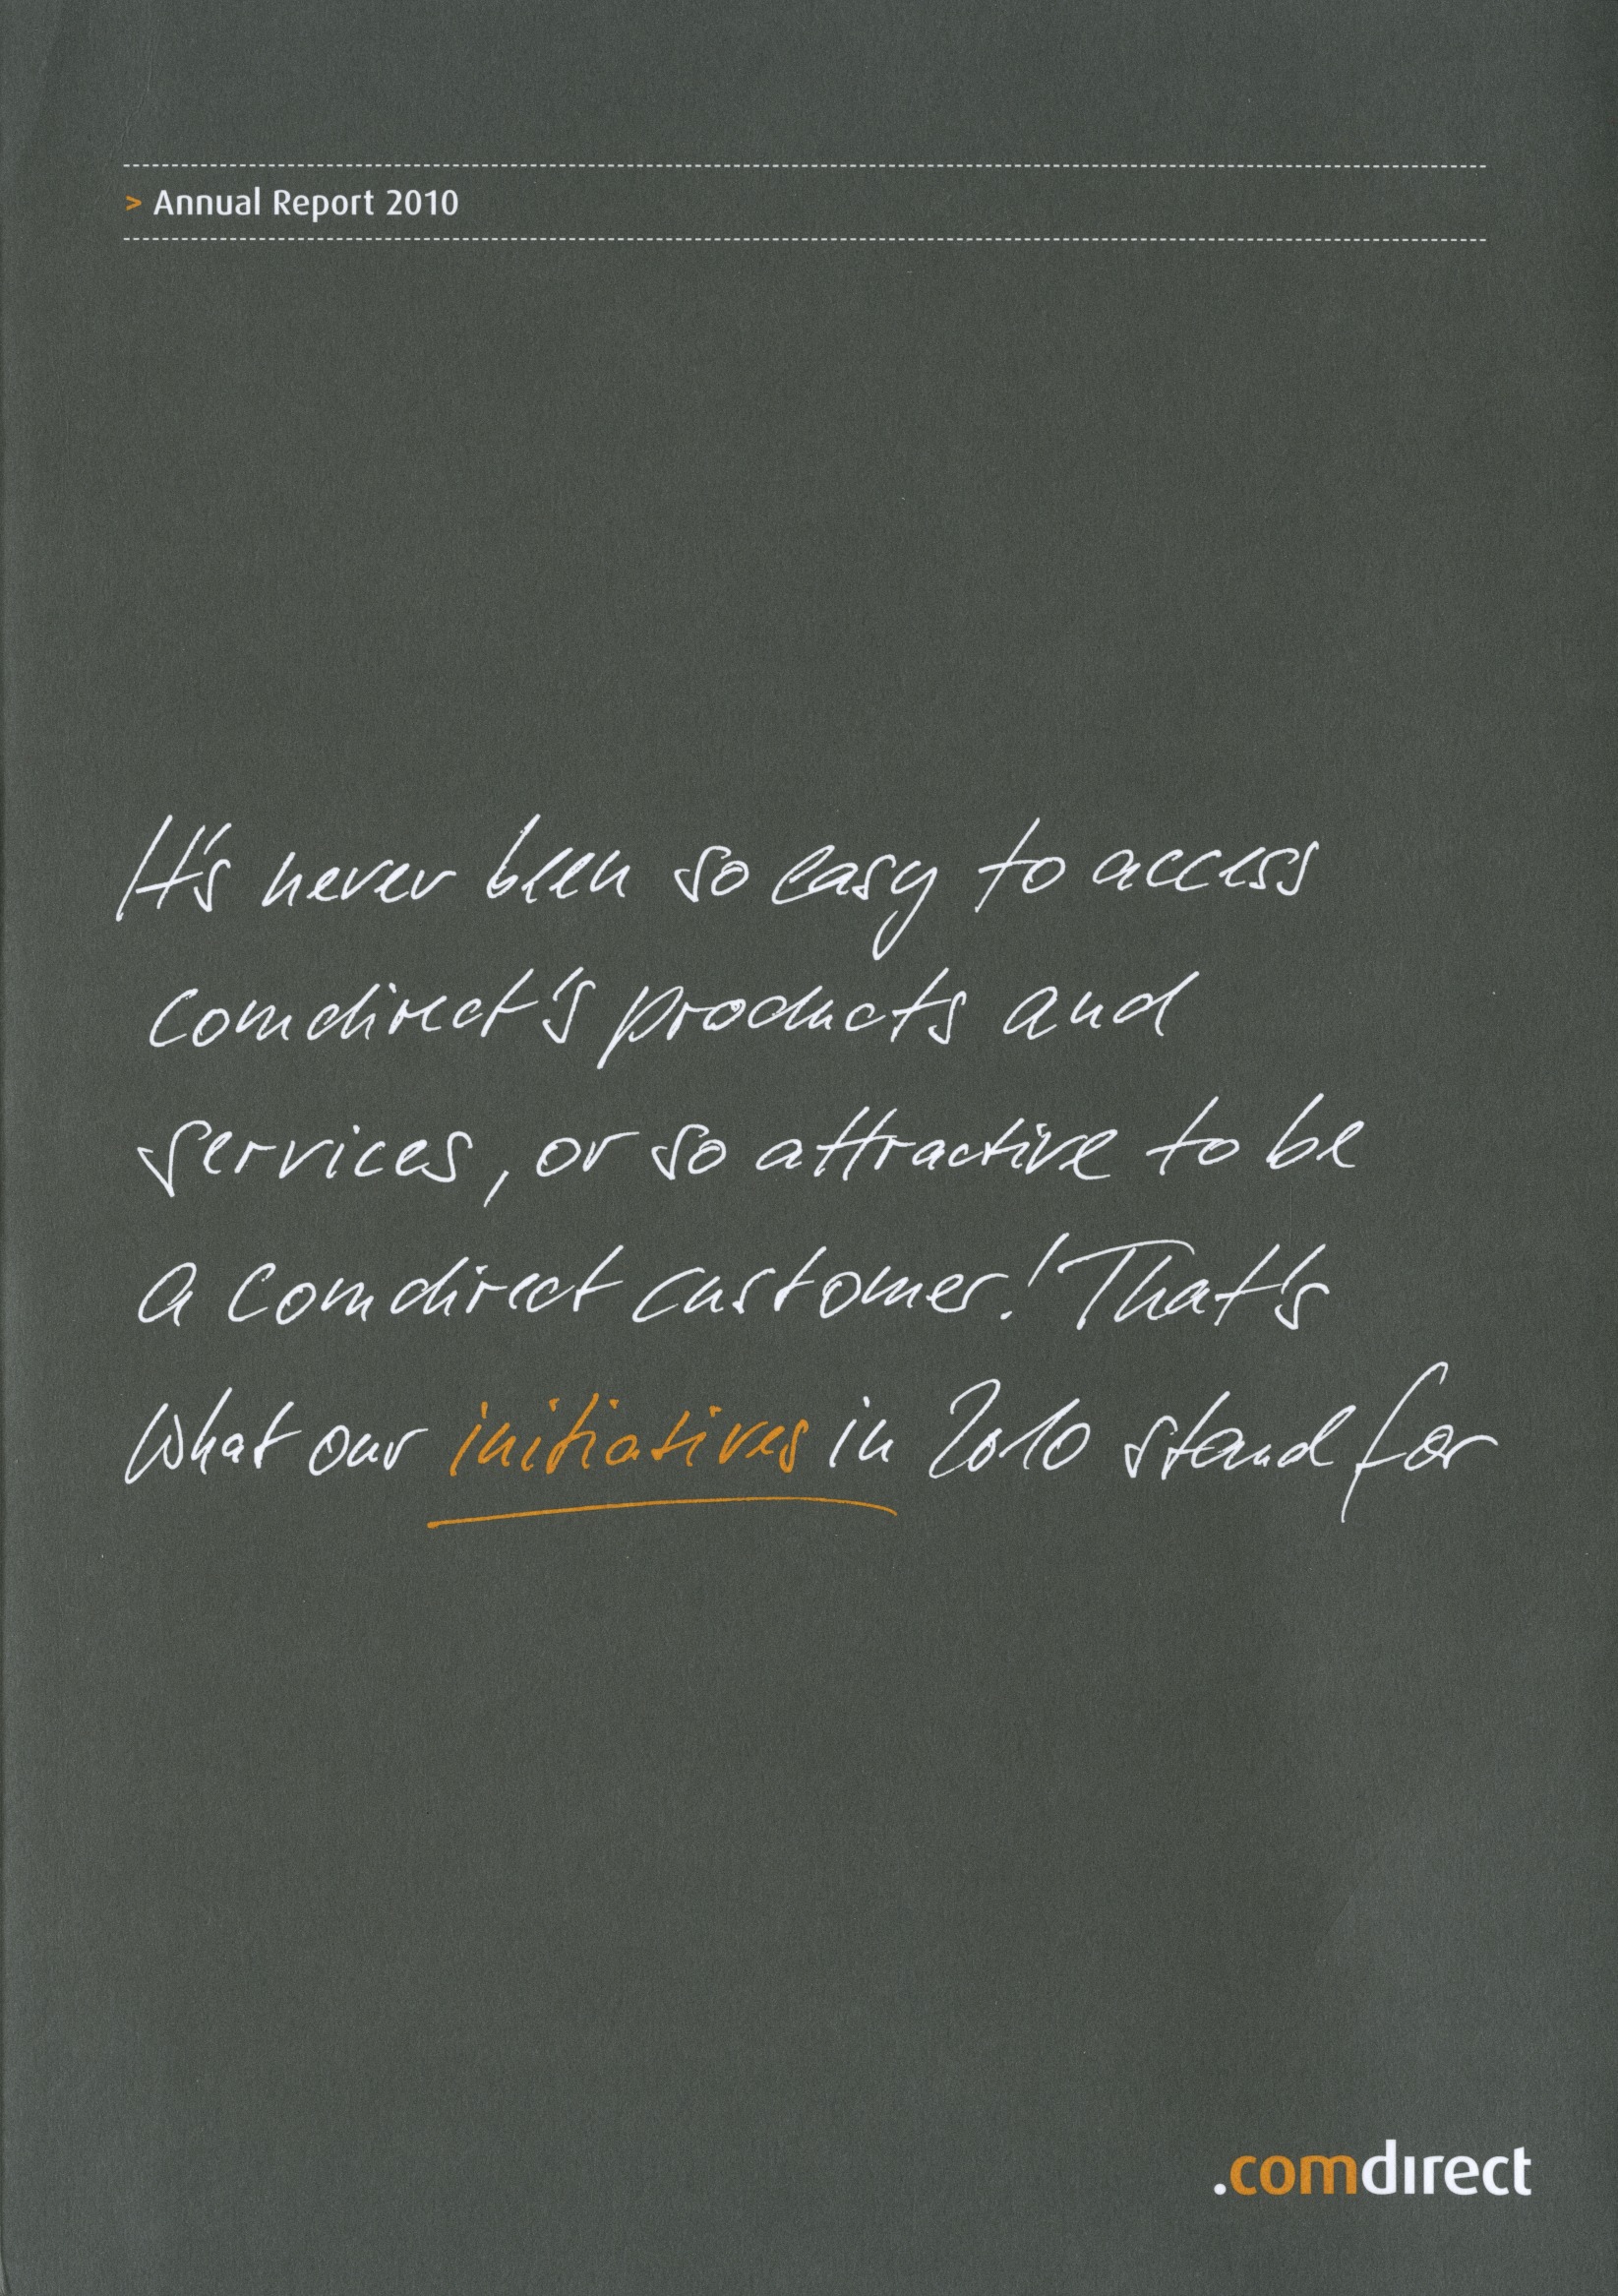 > Annual Report 2010
It's never been so easy to access
comdirect's products and
services, or so attractive to be
a comdirect customer! That's
what our initiatives in 2010 stand for
.comdirect